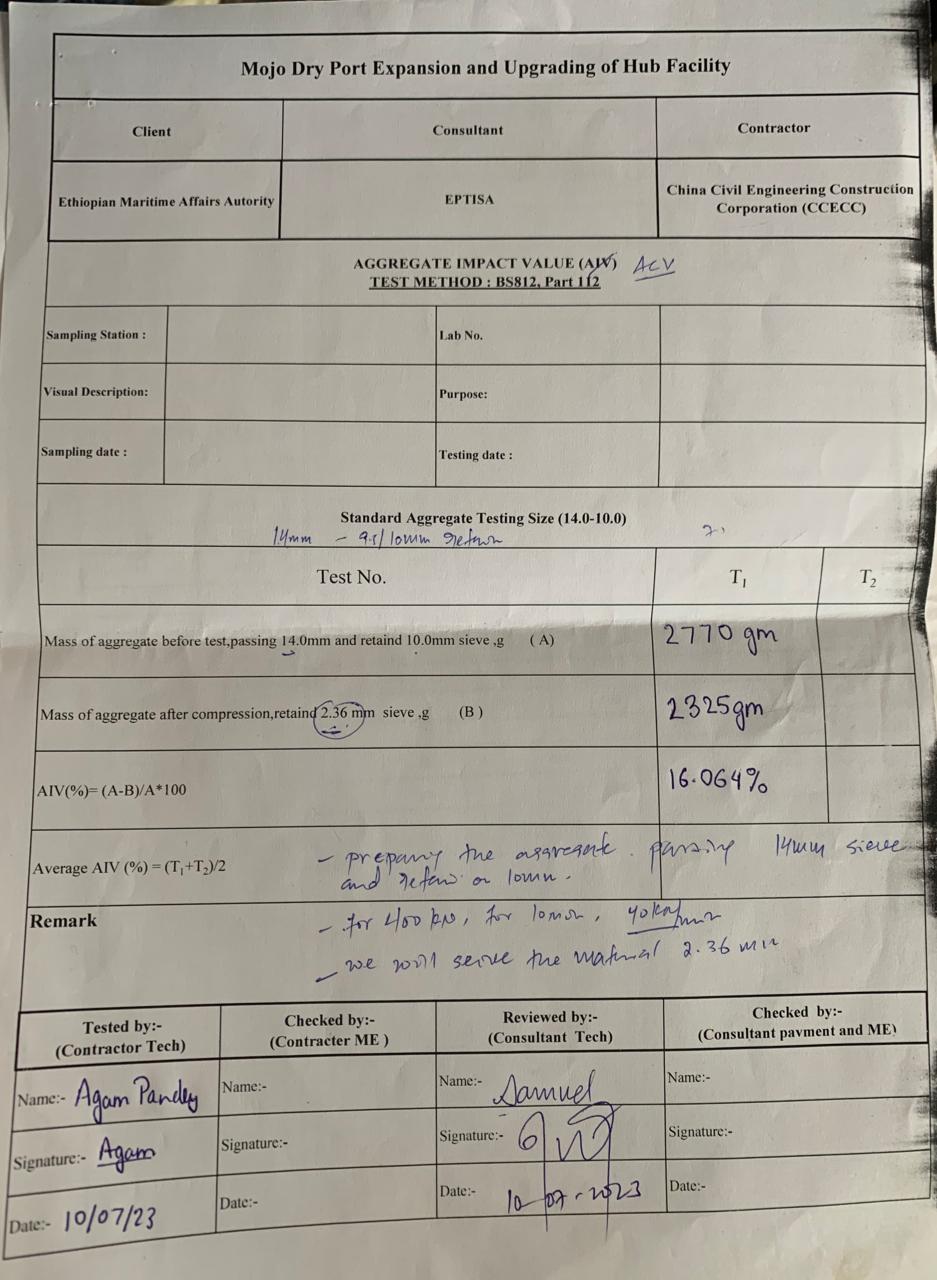 Mojo Dry Port Expansion and Upgrading of Hub Facility
Client Consultant Contractor
Ethiopian Maritime Affairs Autority EPTISA China Civil Engineering Construction
Corporation (CCECC)
AGGREGATE IMPACT VALUE (AIV) ACV
TEST METHOD : BS812, Part 112
Sampling Station : Lab No.
Visual Description: Purpose:
Sampling date : Testing date :
Standard Aggregate Testing Size (14.0-10.0)
14mm - 9.5/10mm retain
Test No. T1 T2
Mass of aggregate before test,passing 14.0mm and retaind 10.0mm sieve ,g ( A) 2770 gm
Mass of aggregate after compression,retaind 2.36 mm sieve ,g (B ) 2325gm
AIV(%)= (A-B)/A*100 16.064%
Average AIV (%) = (T1+T2)/2
- the aggregate passing 14mm sieve
and retain on 10mm.
Remark
- for 400 kN, for 10min, 40kN/min
- we will seive the material 2.36 mm
Tested by:- Checked by:- Reviewed by:- Checked by:-
(Contractor Tech) (Contracter ME ) (Consultant Tech) (Consultant pavment and ME)
Name:- Agam Pandey Name:- Name:- Samuel Name:-
Signature:- Agam Signature:- Signature:- Signature:-
Date:- 10/07/23 Date:- Date:- 10-07-2023 Date:-